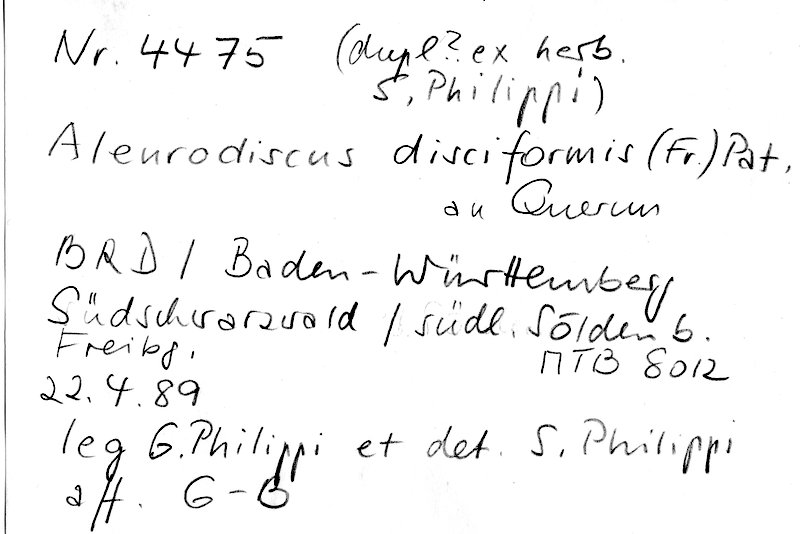 Nr. 4475 (dupl? ex herb.
S. Philippi)
Aleurodiscus disciformis (Fr.) Pat.
an Quercus
BRD / Baden-Württemberg
Südschwarzwald / südl. Sölden b.
Freibg. MTB 8012
22.4.89
leg G. Philippi et det. S. Philippi
aff. G-B